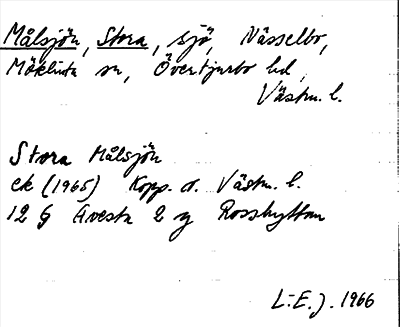 Målsjön, Stora, sjö, Nässelbo,
Möklinta sn, Övertjurbo hd,
Västm. l.
Stora Målsjön
ek (1965) Kopp. o. Västm. l.
12 G Avesta 2 g Rosshyttan
L.E.J. 1966